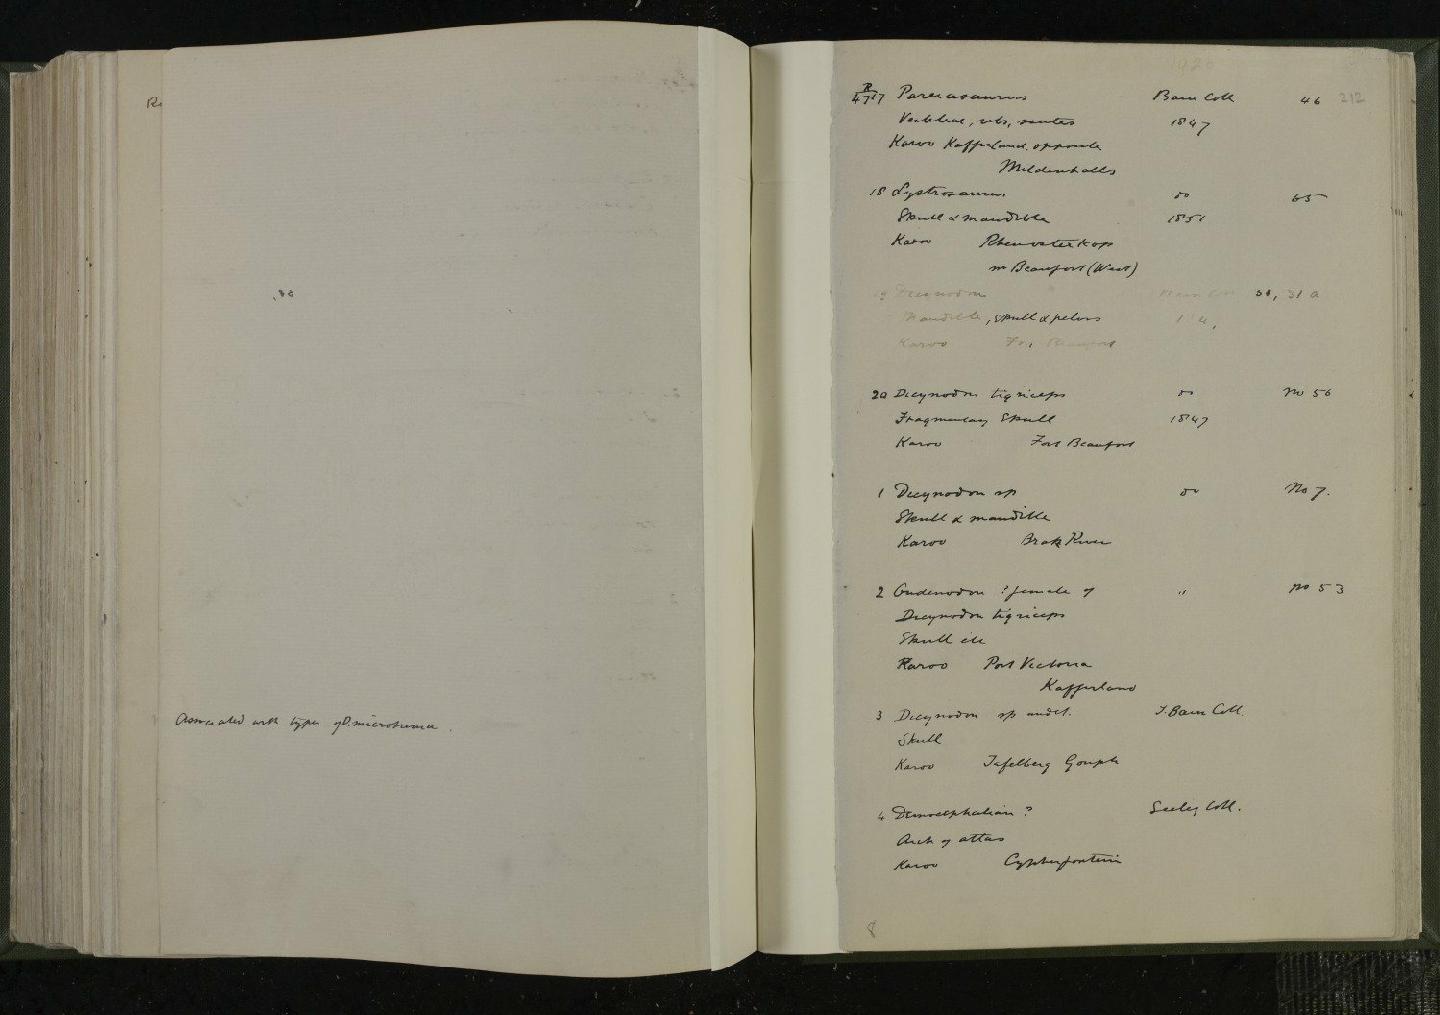 Associated with type of D. microtrema.
1920
R
4717 Pareiasaurus Bain Coll 46 212
Vertebrae, ribs, scutes 1847
Karoo Kafferland opposite
Mildenhalls
18 Lystrosaurus do 65
Skull & mandible 1851
Karoo Rhenosterkop
nr Beaufort (West)
19 Dicynodon Bain Coll 31 a
Mandible, skull & pelvis
Karoo Fort Beaufort
20 Dicynodon tigriceps do No 56
Fragmentary Skull 1847
Karoo Fort Beaufort
1 Dicynodon sp do No 7.
Skull & mandible
Karoo Brak River
2 Oudenodon ? female of " No 53
Dicynodon tigriceps
Skull etc
Karoo Port Victoria
Kafferland
3 Dicynodon sp undet. T. Bain Coll.
Skull
Karoo Tafelberg Gouph
4 Dinocephalian ? Seeley Coll.
Arch of atlas
Karoo Cypherfontein
8